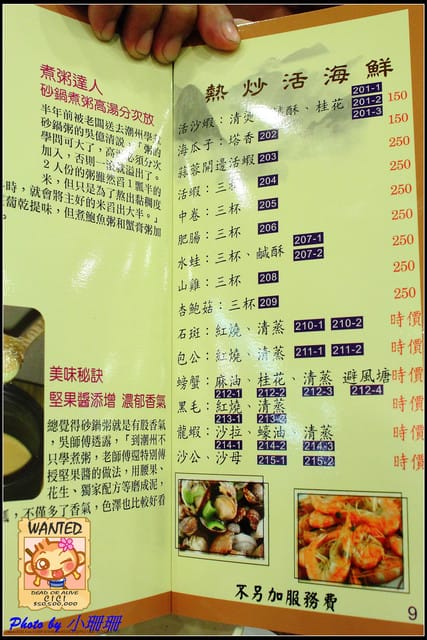 煮粥達人
砂鍋煮粥高湯分次放
半年前被老闆送去潮州學
砂鍋粥的吳億清說，「粥的
學問可大了，高湯必須分次
加入，否則一滾就溢出了。
2人份的粥雖然舀1瓢半的
米，但只是為了熬出黏稠度
時，就會將主好的米舀出大半。」
葡乾提味，但煮鮑魚粥和蟹膏加
美味秘訣
堅果醬添增 濃郁香氣
總覺得砂鍋粥就是有股香氣
，吳師傅透露，「到潮州不
只學煮粥，老師傅還特別傳
授堅果醬的做法，用腰果、
花生、獨家配方等磨成泥，
不僅多了香氣，色澤也比較好看
WANTED
DEAD OR ALIVE
CICI
$50,500,000
Photo by 小珊珊
熱炒活海鮮
活沙蝦：清燙、鹹酥、桂花 201-1 201-2 201-3 150
海瓜子：塔香 202 150
蒜蓉開邊活蝦 203 250
活蝦：三杯 204 250
中卷：三杯 205 250
肥腸：三杯 206 250
水蛙：三杯、鹹酥 207-1 207-2 250
山雞：三杯 208 250
杏鮑菇：三杯 209 250
石斑：紅燒、清蒸 210-1 210-2 時價
包公：紅燒、清蒸 211-1 211-2 時價
螃蟹：麻油、桂花、清蒸 避風塘 時價
212-1 212-2 212-3 212-4
黑毛：紅燒、清蒸 時價
213-1 213-2
龍蝦：沙拉、蠔油、清蒸 時價
214-1 214-2 214-3
沙公、沙母 215-1 215-2 時價
不另加服務費
9